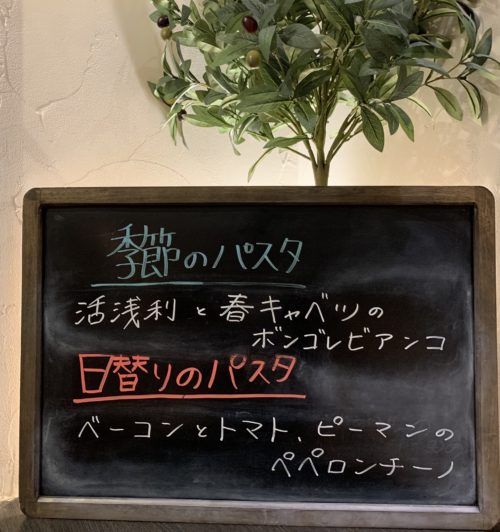 季節のパスタ
活浅利と春キャベツの
ボンゴレビアンコ
日替りのパスタ
ベーコンとトマト、ピーマンの
ペペロンチーノ